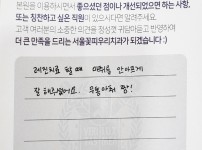 본원을 이용하시면서 좋으셨던 점이나 개선되었으면 하는 사항,
또는 칭찬하고 싶은 직원이 있으시다면 알려주세요.
고객 여러분의 소중한 의견을 정성껏 귀담아듣고 반영하여
더 큰 만족을 드리는 서울꽃피우리치과가 되겠습니다 :)
레진치료 할 때 마취를 안아프게
잘 해주셨어요. 우동아줘 짱!